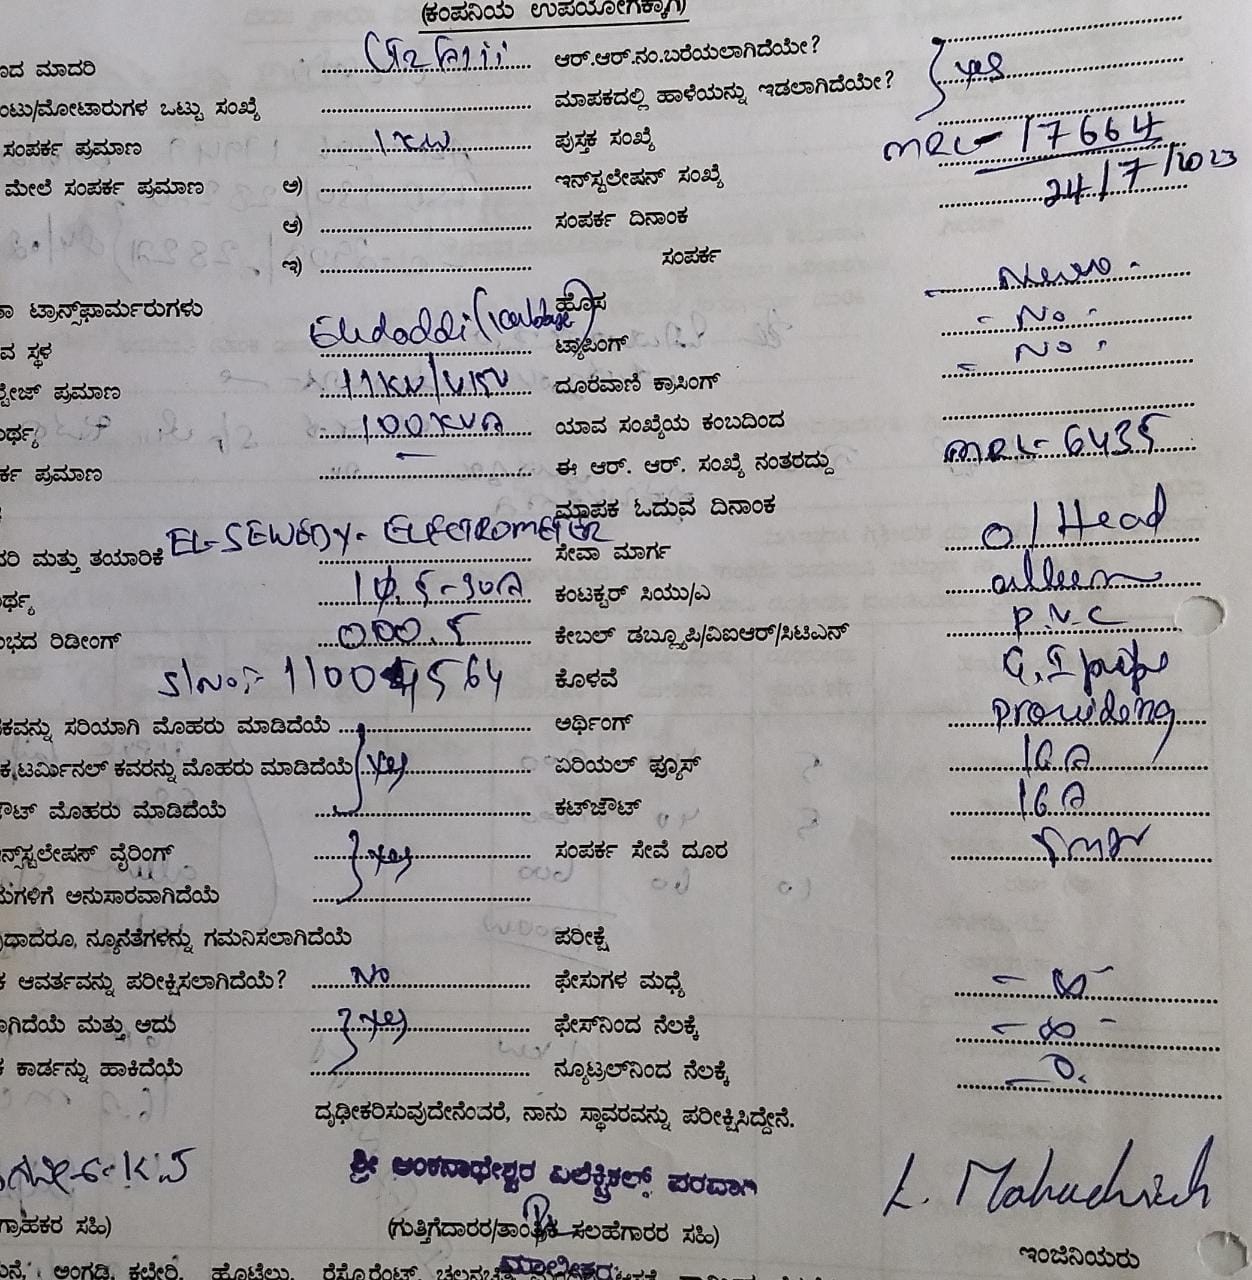 (ಕಂಪನಿಯ ಉಪಯೋಗಕ್ಕಾಗಿ)
ಮಾದರಿ ಆರ್.ಆರ್.ನಂ.ಬರೆಯಲಾಗಿದೆಯೇ? yes
ಂಟು/ಮೋಟಾರುಗಳ ಒಟ್ಟು ಸಂಖ್ಯೆ ಮಾಪಕದಲ್ಲಿ ಹಾಳೆಯನ್ನು ಇಡಲಾಗಿದೆಯೇ?
ಸಂಪರ್ಕ ಪ್ರಮಾಣ 1KW ಪುಸ್ತಕ ಸಂಖ್ಯೆ MRL-17664
ಮೇಲೆ ಸಂಪರ್ಕ ಪ್ರಮಾಣ ಅ) ಇನ್‌ಸ್ಟಲೇಷನ್ ಸಂಖ್ಯೆ 24/7/2023
ಆ) ಸಂಪರ್ಕ ದಿನಾಂಕ
ಇ) ಸಂಪರ್ಕ
ಟ್ರಾನ್ಸ್‌ಫಾರ್ಮರುಗಳು ಹೊಸ - New -
ವ ಸ್ಥಳ Eludoddi ಟ್ಯಾಪಿಂಗ್ - No -
ಪ್ರಮಾಣ 11KV/415V ದೂರವಾಣಿ ಕ್ರಾಸಿಂಗ್ - No -
100KVA ಯಾವ ಸಂಖ್ಯೆಯ ಕಂಬದಿಂದ
ಪ್ರಮಾಣ ಈ ಆರ್. ಆರ್. ಸಂಖ್ಯೆ ನಂತರದ್ದು MRL-6435
ಮಾಪಕ ಓದುವ ದಿನಾಂಕ
ದರಿ ಮತ್ತು ತಯಾರಿಕೆ EL-SEWEDY-ELECTROMETER ಸೇವಾ ಮಾರ್ಗ O/Head
1φ, 5-30A ಕಂಟಕ್ಟರ್ ಸಿಯು/ಎ
ಭದ ರಿಡೀಂಗ್ 000.5 ಕೇಬಲ್ ಡಬ್ಲ್ಯೂಪಿ/ವಿಐಆರ್/ಸಿಟಿಎನ್ P.V.C
Sl No:- 11004564 ಕೊಳವೆ G.I pipe
ಕವನ್ನು ಸರಿಯಾಗಿ ಮೊಹರು ಮಾಡಿದೆಯೆ ಅರ್ಥಿಂಗ್ Providing
ಕ ಟರ್ಮಿನಲ್ ಕವರನ್ನು ಮೊಹರು ಮಾಡಿದೆಯೆ yes ಏರಿಯಲ್ ಫ್ಯೂಸ್ 16A
ಔಟ್ ಮೊಹರು ಮಾಡಿದೆಯೆ ಕಟ್‌ಔಟ್ 16A
ನ್‌ಸ್ಟಲೇಷನ್ ವೈರಿಂಗ್ yes ಸಂಪರ್ಕ ಸೇವೆ ದೂರ 5mtr
ಮಗಳಿಗೆ ಅನುಸಾರವಾಗಿದೆಯೆ
ವುದಾದರೂ, ನ್ಯೂನತೆಗಳನ್ನು ಗಮನಿಸಲಾಗಿದೆಯೆ ಪರೀಕ್ಷೆ
ಕ ಆವರ್ತವನ್ನು ಪರೀಕ್ಷಿಸಲಾಗಿದೆಯೆ? No ಫೇಸುಗಳ ಮಧ್ಯೆ - ∞ -
ಾಗಿದೆಯೆ ಮತ್ತು ಅದು yes ಫೇಸ್‌ನಿಂದ ನೆಲಕ್ಕೆ - ∞ -
ಕ ಕಾರ್ಡನ್ನು ಹಾಕಿದೆಯೆ ನ್ಯೂಟ್ರಲ್‌ನಿಂದ ನೆಲಕ್ಕೆ - 0.
ದೃಢೀಕರಿಸುವುದೇನೆಂದರೆ, ನಾನು ಸ್ಥಾವರವನ್ನು ಪರೀಕ್ಷಿಸಿದ್ದೇನೆ.
ಶ್ರೀ ಅಂಕನಾಥೇಶ್ವರ ಎಲೆಕ್ಟ್ರಿಕಲ್ಸ್ ಪರವಾಗಿ
ಗ್ರಾಹಕರ ಸಹಿ) (ಗುತ್ತಿಗೆದಾರರ/ತಾಂತ್ರಿಕ ಸಲಹೆಗಾರರ ಸಹಿ)
ಮಾಲೀಕರು ಇಂಜಿನಿಯರು
ಮನೆ, ಅಂಗಡಿ, ಕಛೇರಿ, ಹೊಟೆಲು, ರೆಸ್ಟೊರೆಂಟ್,